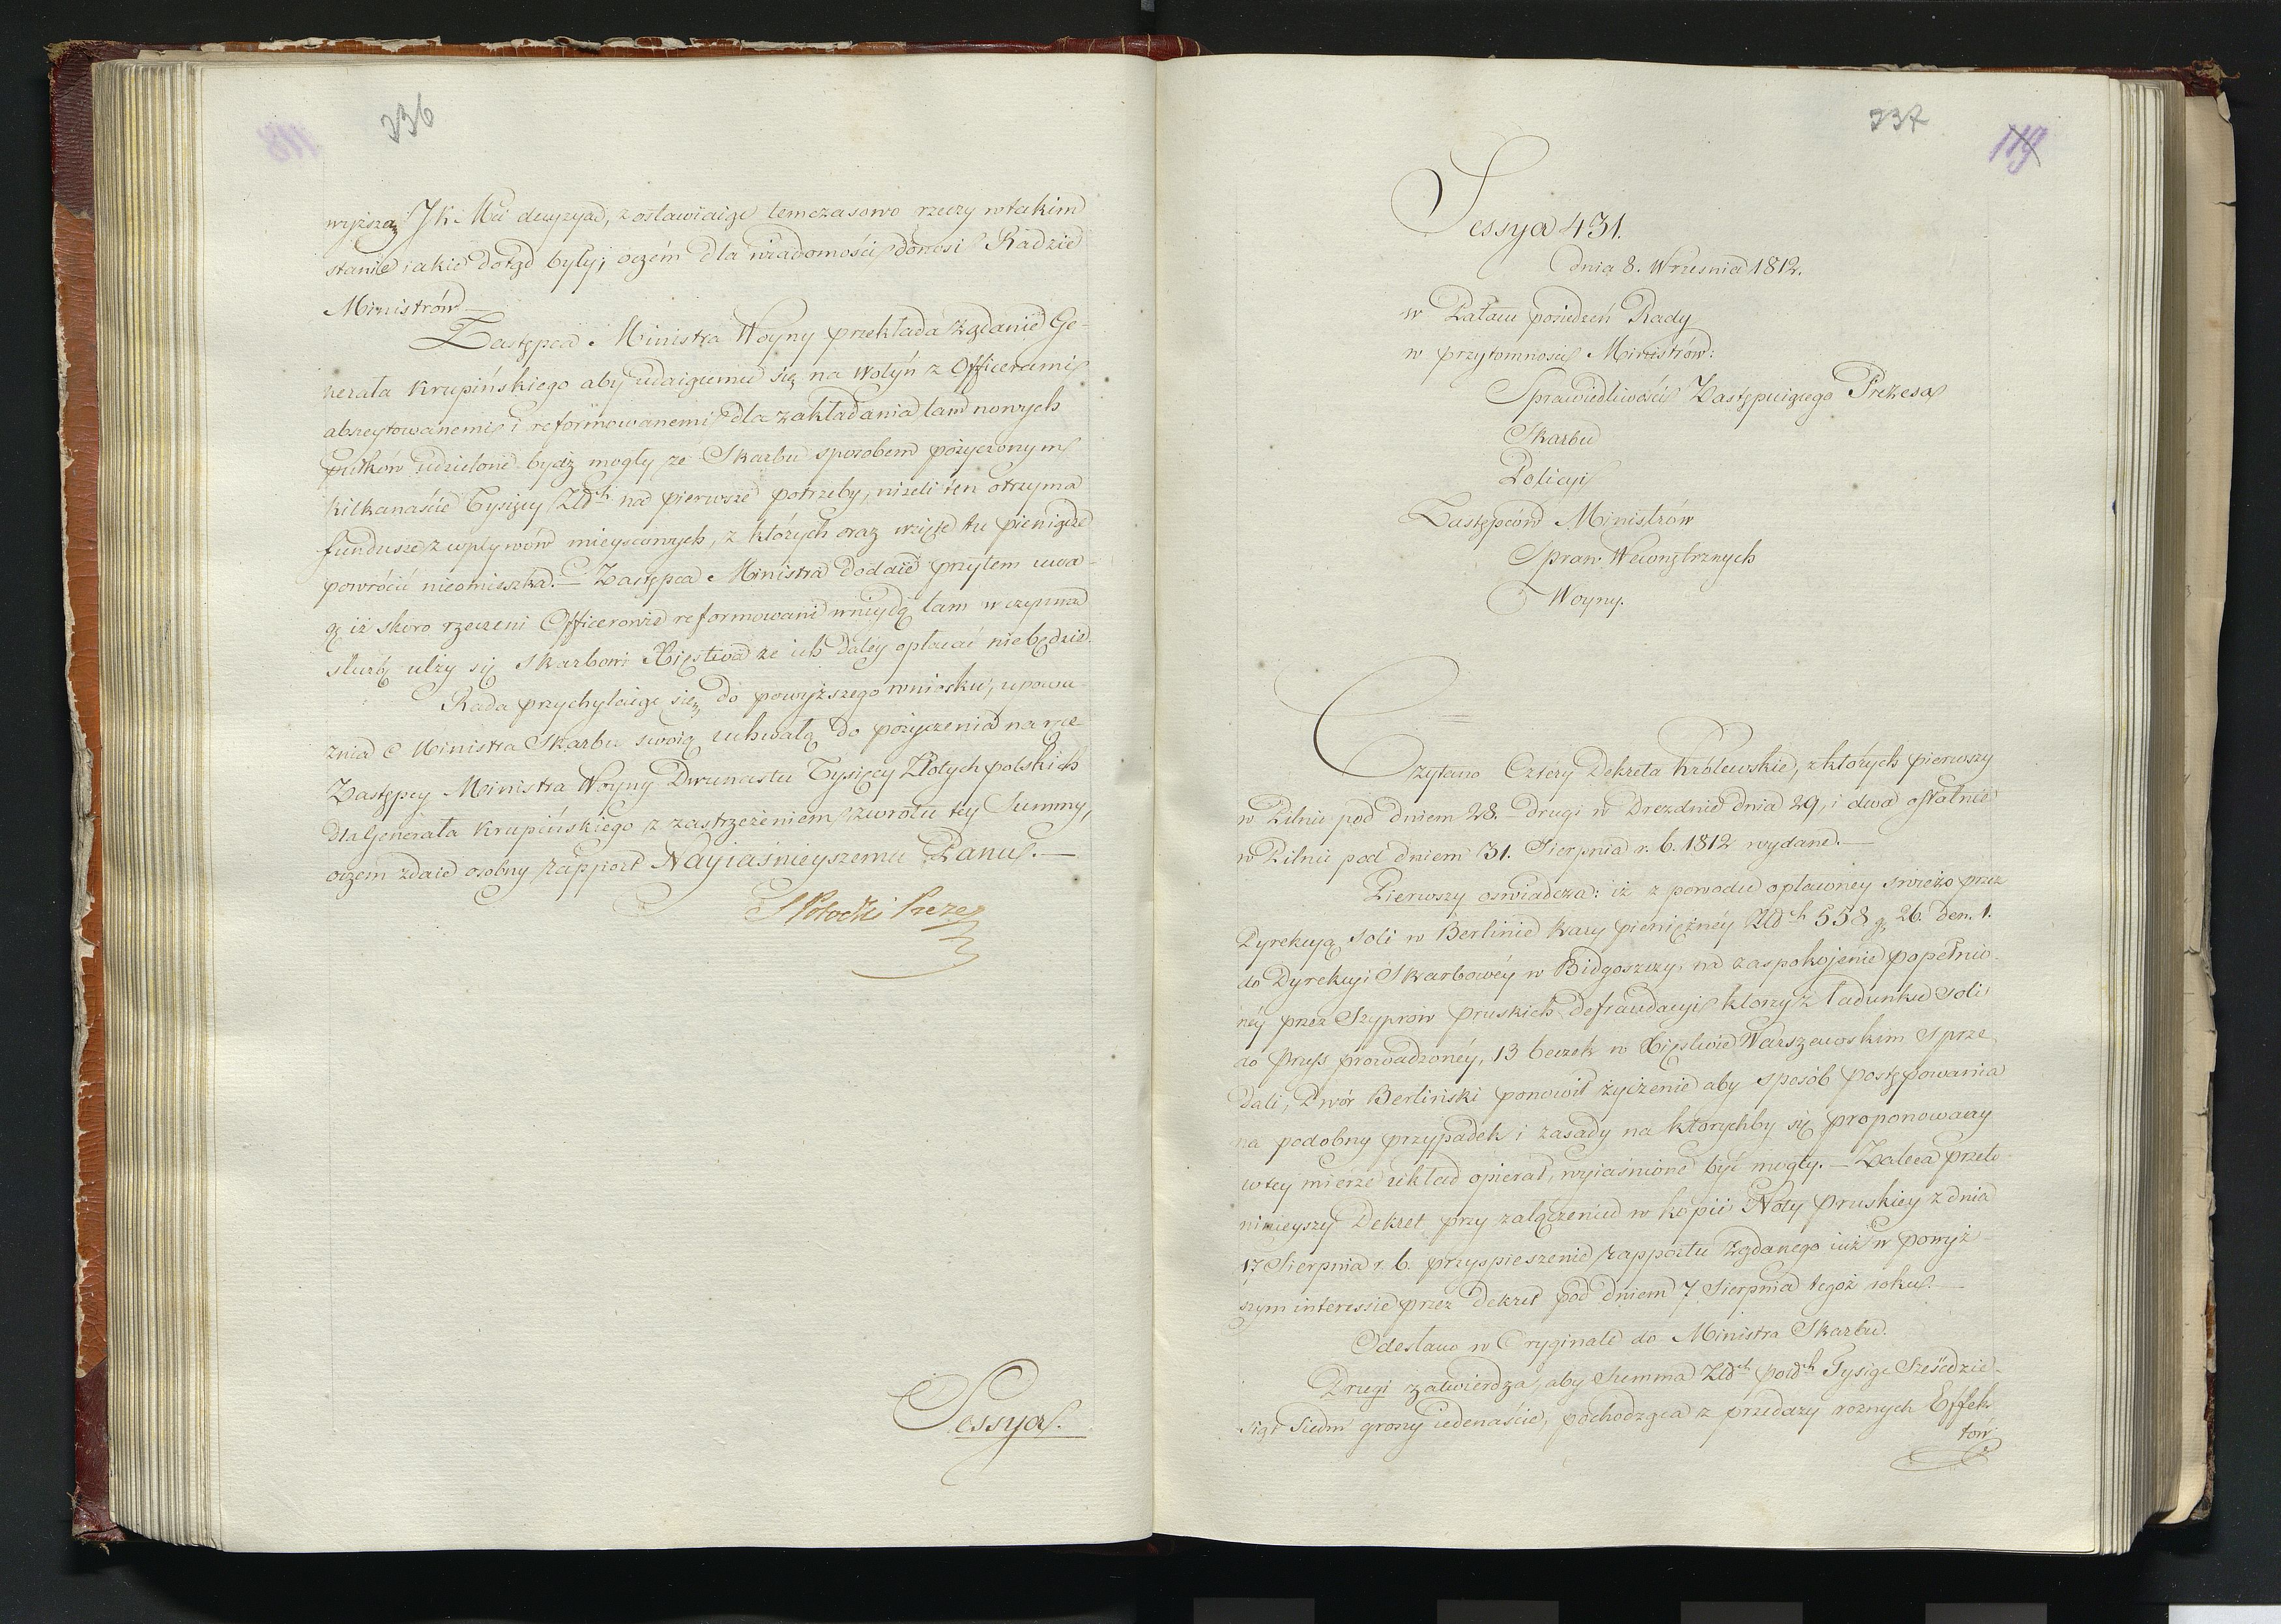 336
wyższą JK. Mci decyzyą, zostawiaiąc temczasowo rzeczy w takim
stanie iakie dotąd były; oczém dla wiadomości donosi Radzie
Ministrów.—
Zastępca Ministra Woyny przekłada żądanie Ge-
nerała Krupińskiego aby udaiącemu się na Wołyń z Officerami
abszeytowanemi i reformowanemi dla zakładania tam nowych
pułków udzielone bydź mogły ze Skarbu sposobem pożyczonym
kilkanaście Tysięcy Złłch na pierwsze potrzeby, niżeli ten otrzyma
fundusze z wpływów mieyscowych, z których oraz wzięte tu pieniądze
powrócić nieomieszka.— Zastępca Ministra dodaie przytem uwa-
gę iż skoro rzeczeni Officerowie reformowani wniydą tam w czynną
służbę ulży się Skarbowi Xięstwa że ich daléy opłacać niebędzie.
Rada przychylaiąc się do powyższego wniosku, upowa-
żnia Ministra Skarbu swoią uchwałą do pożyczenia na ręce
Zastępcy Ministra Woyny Dwunastu Tysięcy Złotych polskich
dla Generała Krupińskiego z zastrzeżeniem zwrotu tey Summy,
oczem zdaie osobny rapport Nayiaśnieyszemu Panu.—
S Potocki Prezes
Sessya.
337
119
Sessya 431.
dnia 8. Wrzesnia 1812.
w Pałacu posiedzeń Rady
w przytomności Ministrów:
Sprawiedliwości Zastępuiącego Prezesa
Skarbu
Policyi
Zastępców Ministrów
Spraw Wewnętrznych
Woyny.
Czytano Cztéry Dekreta Królewskie, z których pierwszy
w Pilnic pod dniem 28. drugi w Dreznie dnia 29, i dwa ostatnie
w Pilnic pod dniem 31. Sierpnia r. b. 1812 wydane.—
Pierwszy oswiadcza: iż z powodu opłaconey swieżo przez
Dyrekcyą soli w Berlinie kary pieniężnéy Złłch 558 gr 26. den. 1.
do Dyrekcyi Skarbowéy w Bidgoszczy, na zaspokojenie popełnio-
néy przez Szyprów pruskich defraudacyi ktorzy z ładunku soli
do Pruss prowadzonéy, 13 beczek w Xięstwie Warszawskim sprze-
dali, Dwór Berliński ponowił życzenie aby sposób postępowania
na podobny przypadek i zasady na którychby się proponowany
w tey mierze układ opierał, wyiaśnione być mogły.— Zaleca przeto
ninieyszy Dekret przy załączeniu w kopii Noty pruskiey z dnia
17 Sierpnia r. b. przyspieszenie rapportu żądanego iuż w powyż-
szym interessie przez dekret pod dniem 7 Sierpnia tegoż roku.—
Odesłano w Oryginale do Ministra Skarbu.
Drugi zatwierdza, aby Summa Złłch polłch Tysiąc Sześćdzie-
siąt Siedm groszy iedenaście, pochodząca z przedaży roznych Effek-
tów